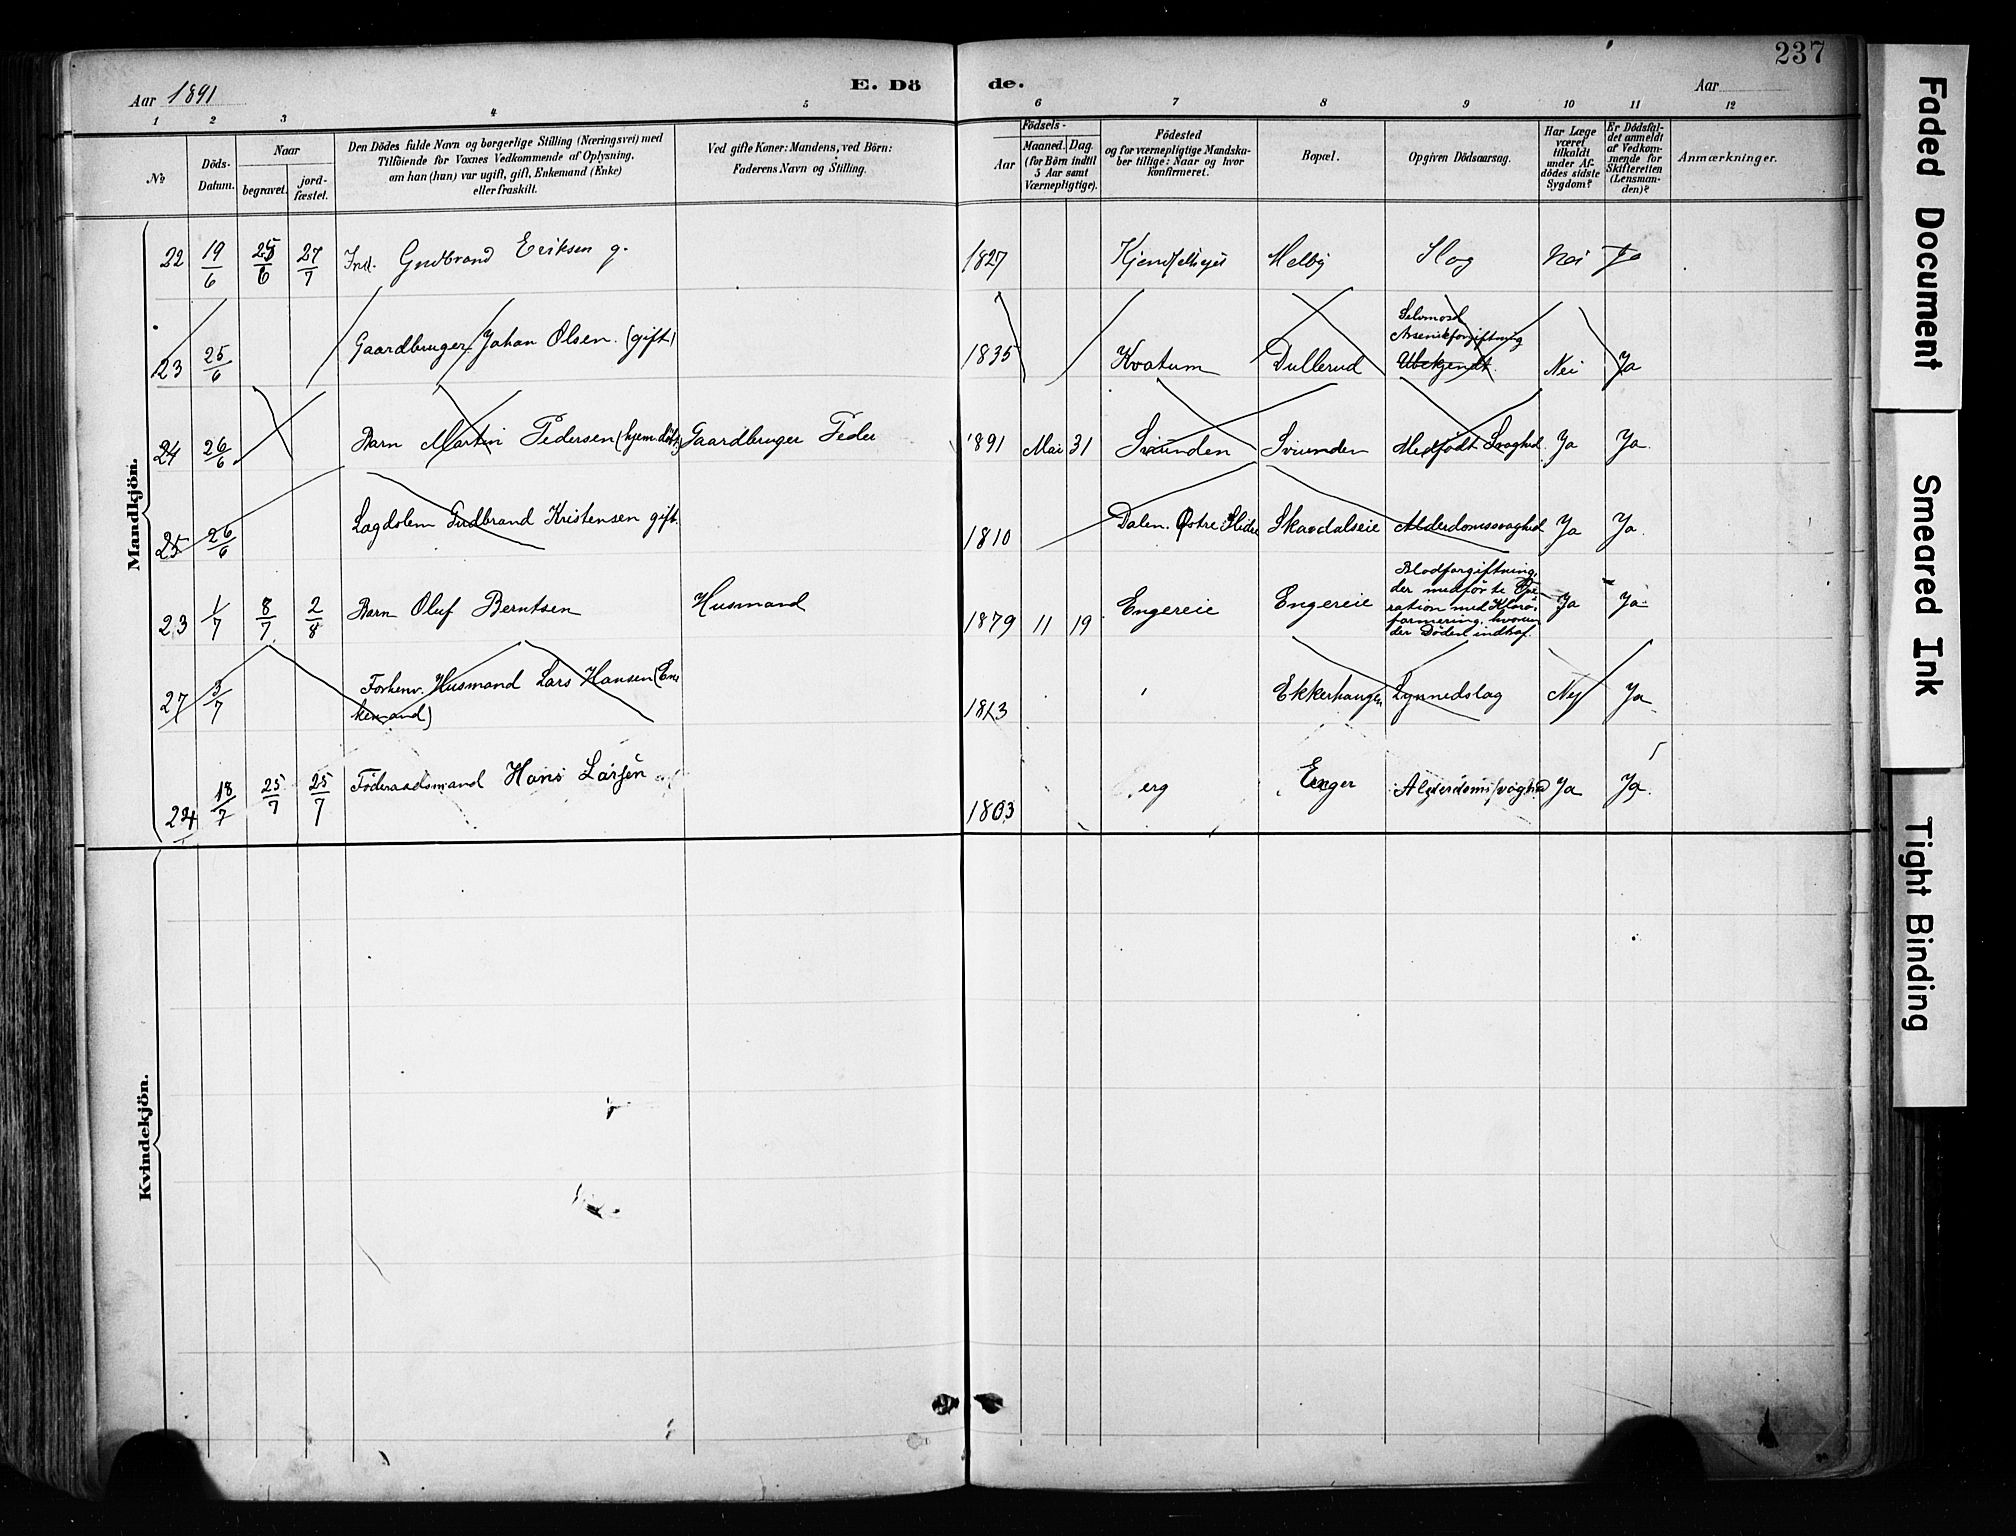 237
Aar 1891
E. Dö
de.
Aar
1 2 3 4 5 6 7 8 9 10 11 12
No
Döds-
Datum.
Naar
begravet.
jord-
fæstet.
Den Dödes fulde Navn og borgerlige Stilling (Næringsvei) med
Tilföiende for Voxnes Vedkommende af Oplysning,
om han (hun) var ugift, gift, Enkemand (Enke)
eller fraskilt.
Ved gifte Koner: Mandens, ved Börn:
Faderens Navn og Stilling.
Födsels-
Aar
Maaned. Dag.
(for Börn indtil
5 Aar samt
Værnepligtige).
Födested
og for værnepligtige Mandska-
ber tillige: Naar og hvor
konfirmeret.
Bopæl.
Opgiven Dödsaarsag.
Har Læge
været
tilkaldt
under Af-
dödes sidste
Sygdom?
Er Dödsfal-
det anmeldt
af Vedkom-
mende for
Skifteretten
(Lensman-
den)?
Anmærkninger.
Mandkjön.
22 19/6 25/6 27/7 Ind. Gudbrand Eriksen g. 1827 Melby Slag Nei Ja
23 25/6 Gaardbruger Johan Olsen. (gift) 1835 Kvatum Dullerud Selvmord
Arsenikforgiftning
Ubekjendt. Nei Ja
24 26/6 Barn Martin Pedersen (hjem.döbt) Gaardbruger Feder 1891 Mai 31 Sviunden Sviunden Medfødt Svaghed Ja Ja.
25 26/6 Lagdolem Gudbrand Kristensen gift. 1810 Dalen. Østre Slidre Skavdalseie Alderdomssvaghed Ja Ja.
23 1/7 8/7 2/8 Barn Oluf Berntsen Husmand 1879 11 19 Engereie Engereie Blodforgiftning,
der medførte Ope-
ration med Kloro-
formering, hvorun-
der Døden indtraf. Ja Ja
27 3/7 Forhenv. Husmand Lars Hansen (En-
kemand) 1813 Ekkerhaugen Lynnedslag Nej Ja
24 18/7 25/7 25/7 Föderaadsmand Hans Larsen 1803 erg Enger Alderdomssvaghed Ja Ja.
Kvindekjön.
Faded Document
Smeared Ink
Tight Binding